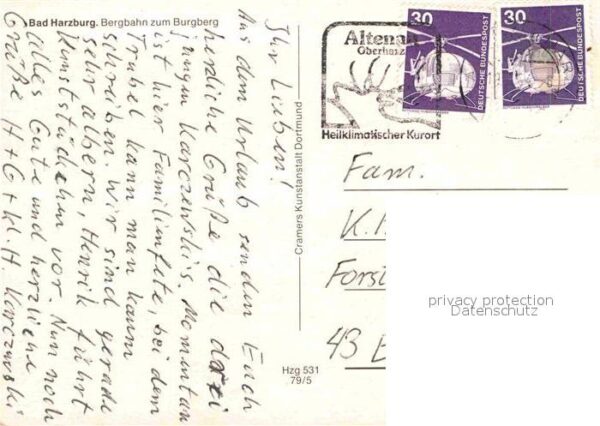 Bad Harzburg. Bergbahn zum Burgberg
Ihr Lieben!
Aus dem Urlaub senden Euch
herzliche Grüße die drei
jungen Karczewski's. Momentan
ist hier Familienfete, bei dem
Trubel kann man kaum
schreiben. Wir sind gerade
sehr albern, Henrik führt
Kunststückchen vor. Nun noch
alles Gute und herzliche
Grüße H + G + kl. H. Karczewski
Cramers Kunstanstalt Dortmund
Hzg 531
79/5
Altenau
Oberharz
Heilklimatischer Kurort
30
DEUTSCHE BUNDESPOST
30
DEUTSCHE BUNDESPOST
Fam.
K.
Forst
43 E
privacy protection
Datenschutz